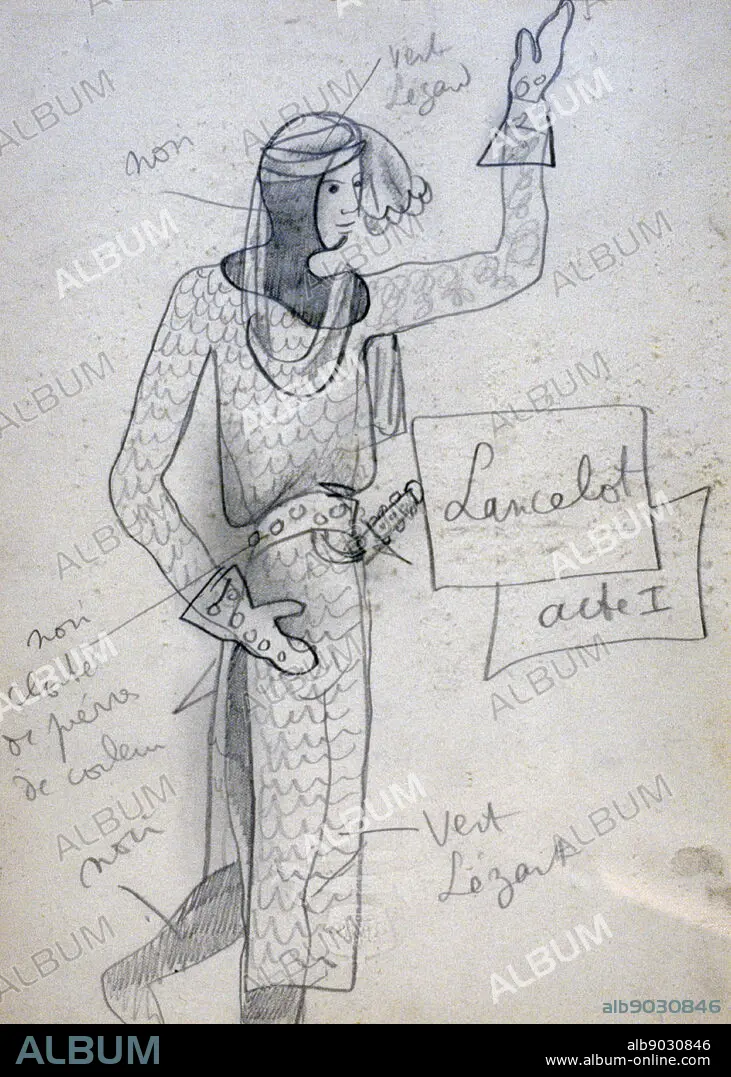 Vert
Lézard
noir
Lancelot
acte I
noir
clouté
de pierres
de couleur
noir
Vert
Lézard
ALBUM
alb9030846
ALBUM
alb9030846
www.album-online.com